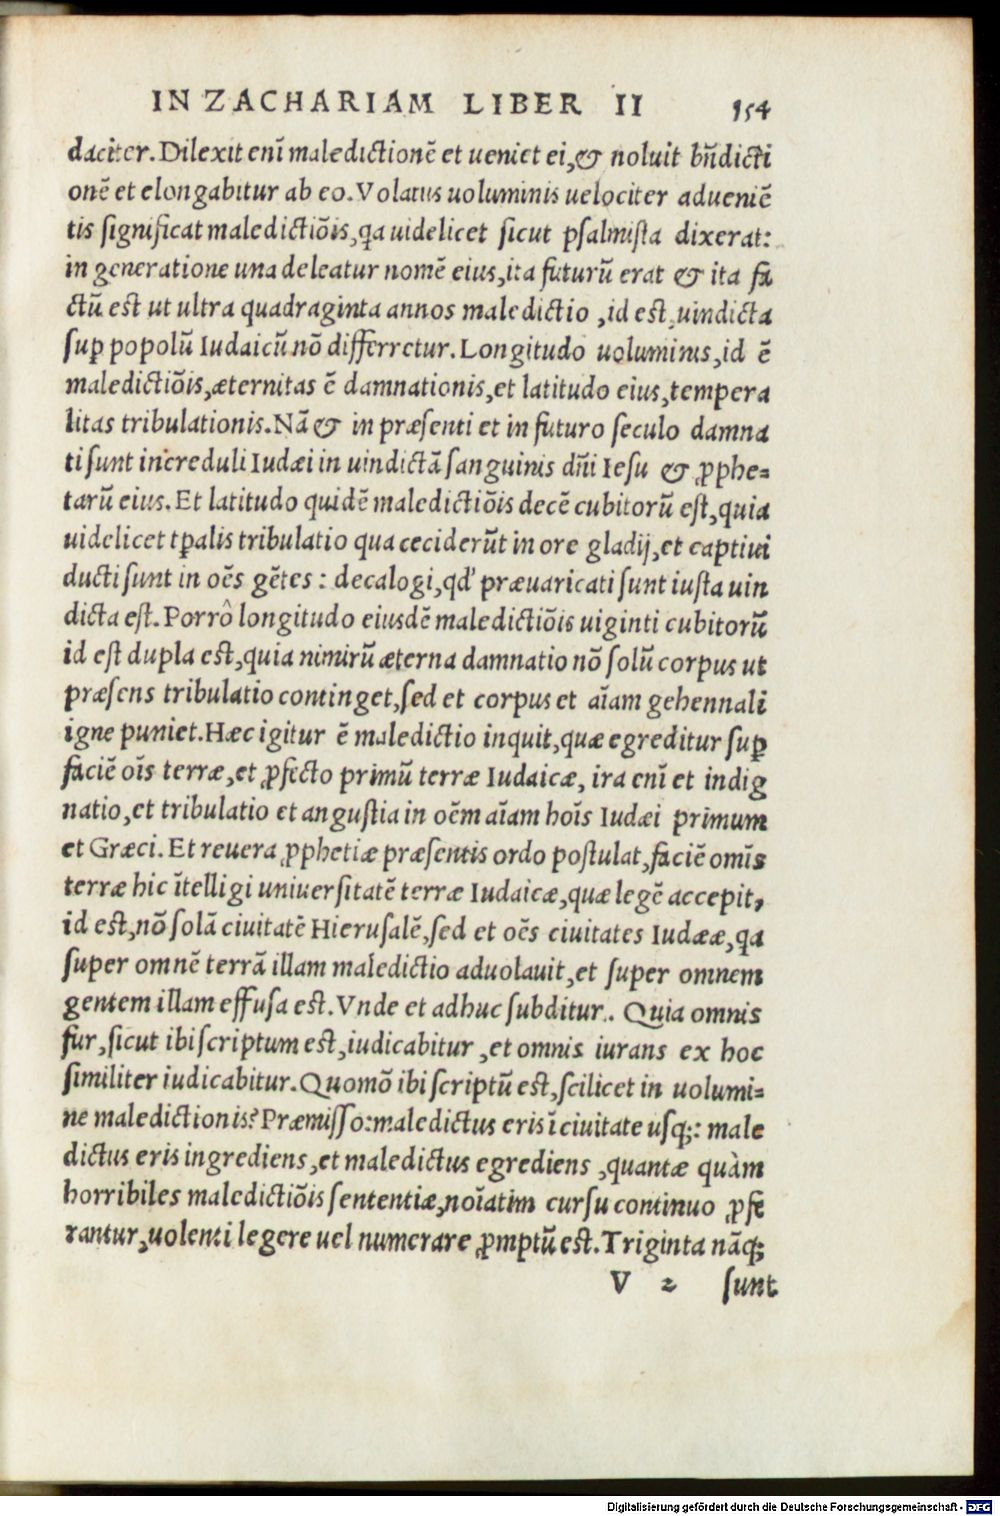 IN ZACHARIAM LIBER II 154
daciter. Dilexit enī maledictionē et ueniet ei, & noluit bn̄dicti
onē et elongabitur ab eo. Volatus uoluminis uelociter adueniē
tis significat maledictiōis, qa uidelicet sicut psalmista dixerat:
in generatione una deleatur nomē eius, ita futurū erat & ita fa
ctū est ut ultra quadraginta annos maledictio, id est, uindicta
suꝑ popolū Iudaicū nō differretur. Longitudo uoluminis, id ē
maledictiōis, æternitas ē damnationis, et latitudo eius, tempera
litas tribulationis. Nā & in præsenti et in futuro seculo damna
ti sunt increduli Iudæi in uindictā sanguinis dn̄i Iesu & ꝓphe=
tarū eius. Et latitudo quidē maledictiōis decē cubitorū est, quia
uidelicet tꝑalis tribulatio qua ceciderūt in ore gladij, et captiui
ducti sunt in oēs gētes: decalogi, qd' præuaricati sunt iusta uin
dicta est. Porrô longitudo eiusdē maledictiōis uiginti cubitorū
id est dupla est, quia nimirū æterna damnatio nō solū corpus ut
præsens tribulatio continget, sed et corpus et aīam gehennali
igne puniet. Hæc igitur ē maledictio inquit, quæ egreditur suꝑ
faciē oīs terræ, et ꝓfecto primū terræ Iudaicæ, ira enī et indig
natio, et tribulatio et angustia in oēm aīam hoīs Iudæi primum
et Græci. Et reuera ꝓphetiæ præsentis ordo postulat, faciē omīs
terræ hic ītelligi uniuersitatē terræ Iudaicæ, quæ legē accepit,
id est, nō solā ciuitatē Hierusalē, sed et oēs ciuitates Iudææ, qa
super omnē terrā illam maledictio aduolauit, et super omnem
gentem illam effusa est. Vnde et adhuc subditur. Quia omnis
fur, sicut ibi scriptum est, iudicabitur, et omnis iurans ex hoc
similiter iudicabitur. Quomō ibi scriptū est, scilicet in uolumi=
ne maledictionis? Præmisso: maledictus eris ī ciuitate usq;: male
dictus eris ingrediens, et maledictus egrediens, quantæ quàm
horribiles maledictiōis sententiæ, noīatim cursu continuo ꝓfe
rantur, uolenti legere uel numerare ꝓmptū est. Triginta nāq;
V 2 sunt
Digitalisierung gefördert durch die Deutsche Forschungsgemeinschaft - DFG